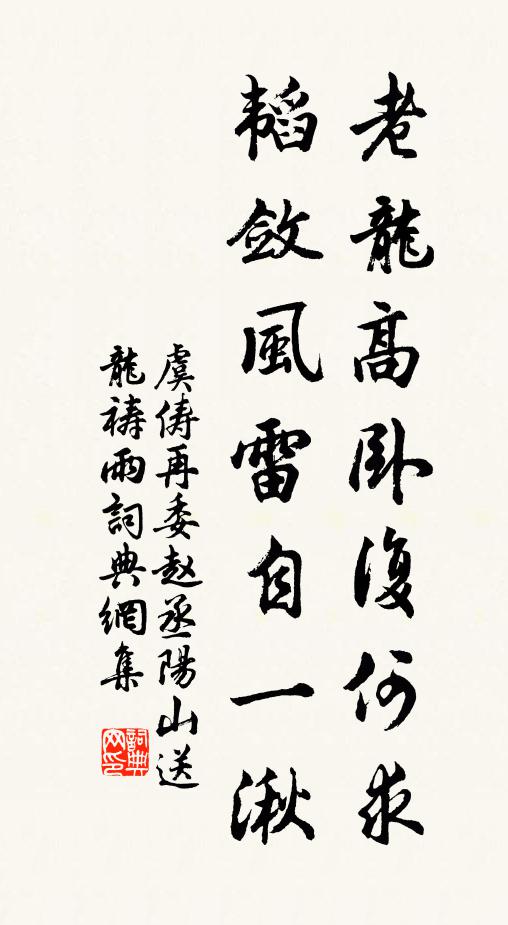 老龍高卧復何求
韜斂風雷自一湫
虞儔再委赵丞陽山送
龍祷雨詞典網集
詞典网印